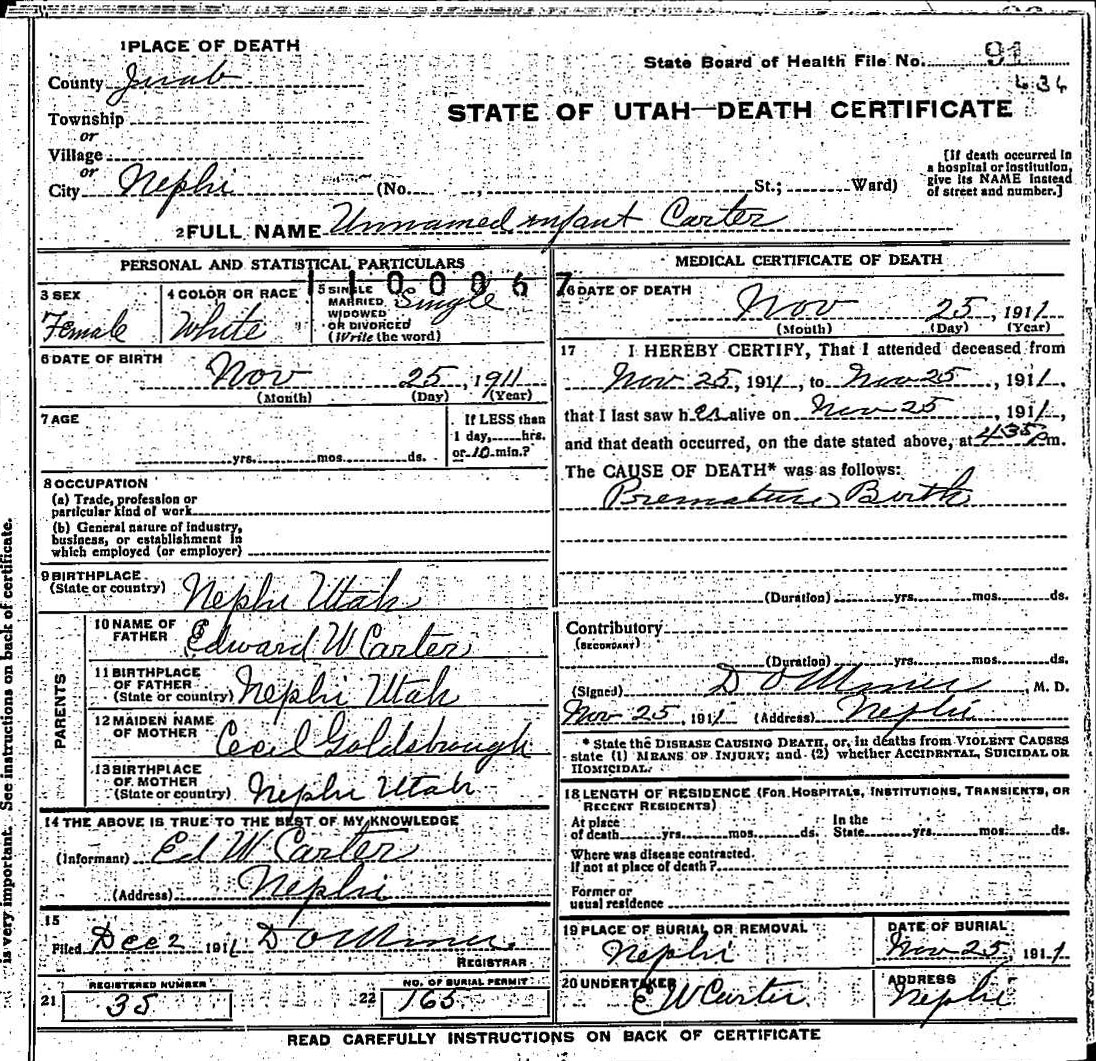 1 PLACE OF DEATH
County Juab
Township
or
Village
or
City Nephi (No. , St.; Ward)
State Board of Health File No. 91
434
STATE OF UTAH—DEATH CERTIFICATE
[If death occurred in
a hospital or institution,
give its NAME instead
of street and number.]
2 FULL NAME Unnamed infant Carter
PERSONAL AND STATISTICAL PARTICULARS
1100067
3 SEX
Female
4 COLOR OR RACE
White
5 SINGLE
MARRIED
WIDOWED
OR DIVORCED
(Write the word)
Single
6 DATE OF BIRTH
Nov 25, 1911
(Month) (Day) (Year)
7 AGE
yrs. mos. ds.
If LESS than
1 day, hrs.
or 10 min.?
8 OCCUPATION
(a) Trade, profession or
particular kind of work
(b) General nature of industry,
business, or establishment in
which employed (or employer)
9 BIRTHPLACE
(State or country) Nephi Utah
PARENTS
10 NAME OF
FATHER Edward W Carter
11 BIRTHPLACE
OF FATHER
(State or country) Nephi Utah
12 MAIDEN NAME
OF MOTHER Cecil Goldsbrough
13 BIRTHPLACE
OF MOTHER
(State or country) Nephi Utah
14 THE ABOVE IS TRUE TO THE BEST OF MY KNOWLEDGE
(Informant) Ed W Carter
(Address) Nephi
15
Filed Dec 2 1911 D O Miner
REGISTRAR
21 REGISTERED NUMBER
35
22 NO. OF BURIAL PERMIT
165
MEDICAL CERTIFICATE OF DEATH
16 DATE OF DEATH
Nov 25, 1911
(Month) (Day) (Year)
17 I HEREBY CERTIFY, That I attended deceased from
Nov 25, 1911, to Nov 25, 1911,
that I last saw her alive on Nov 25, 1911,
and that death occurred, on the date stated above, at 435 Pm.
The CAUSE OF DEATH* was as follows:
Premature Birth
(Duration) yrs. mos. ds.
Contributory
(SECONDARY)
(Duration) yrs. mos. ds.
(Signed) D O Miner, M. D.
Nov 25, 1911 (Address) Nephi
* State the DISEASE CAUSING DEATH, or, in deaths from VIOLENT CAUSES
state (1) MEANS OF INJURY; and (2) whether ACCIDENTAL, SUICIDAL OR
HOMICIDAL.
18 LENGTH OF RESIDENCE (FOR HOSPITALS, INSTITUTIONS, TRANSIENTS, OR
RECENT RESIDENTS)
At place
of death yrs. mos. ds.
In the
State yrs. mos. ds.
Where was disease contracted.
if not at place of death?
Former or
usual residence
19 PLACE OF BURIAL OR REMOVAL
Nephi
DATE OF BURIAL
Nov 25, 1911
20 UNDERTAKER
E W Carter
ADDRESS
Nephi
READ CAREFULLY INSTRUCTIONS ON BACK OF CERTIFICATE
is very important. See instructions on back of certificate.